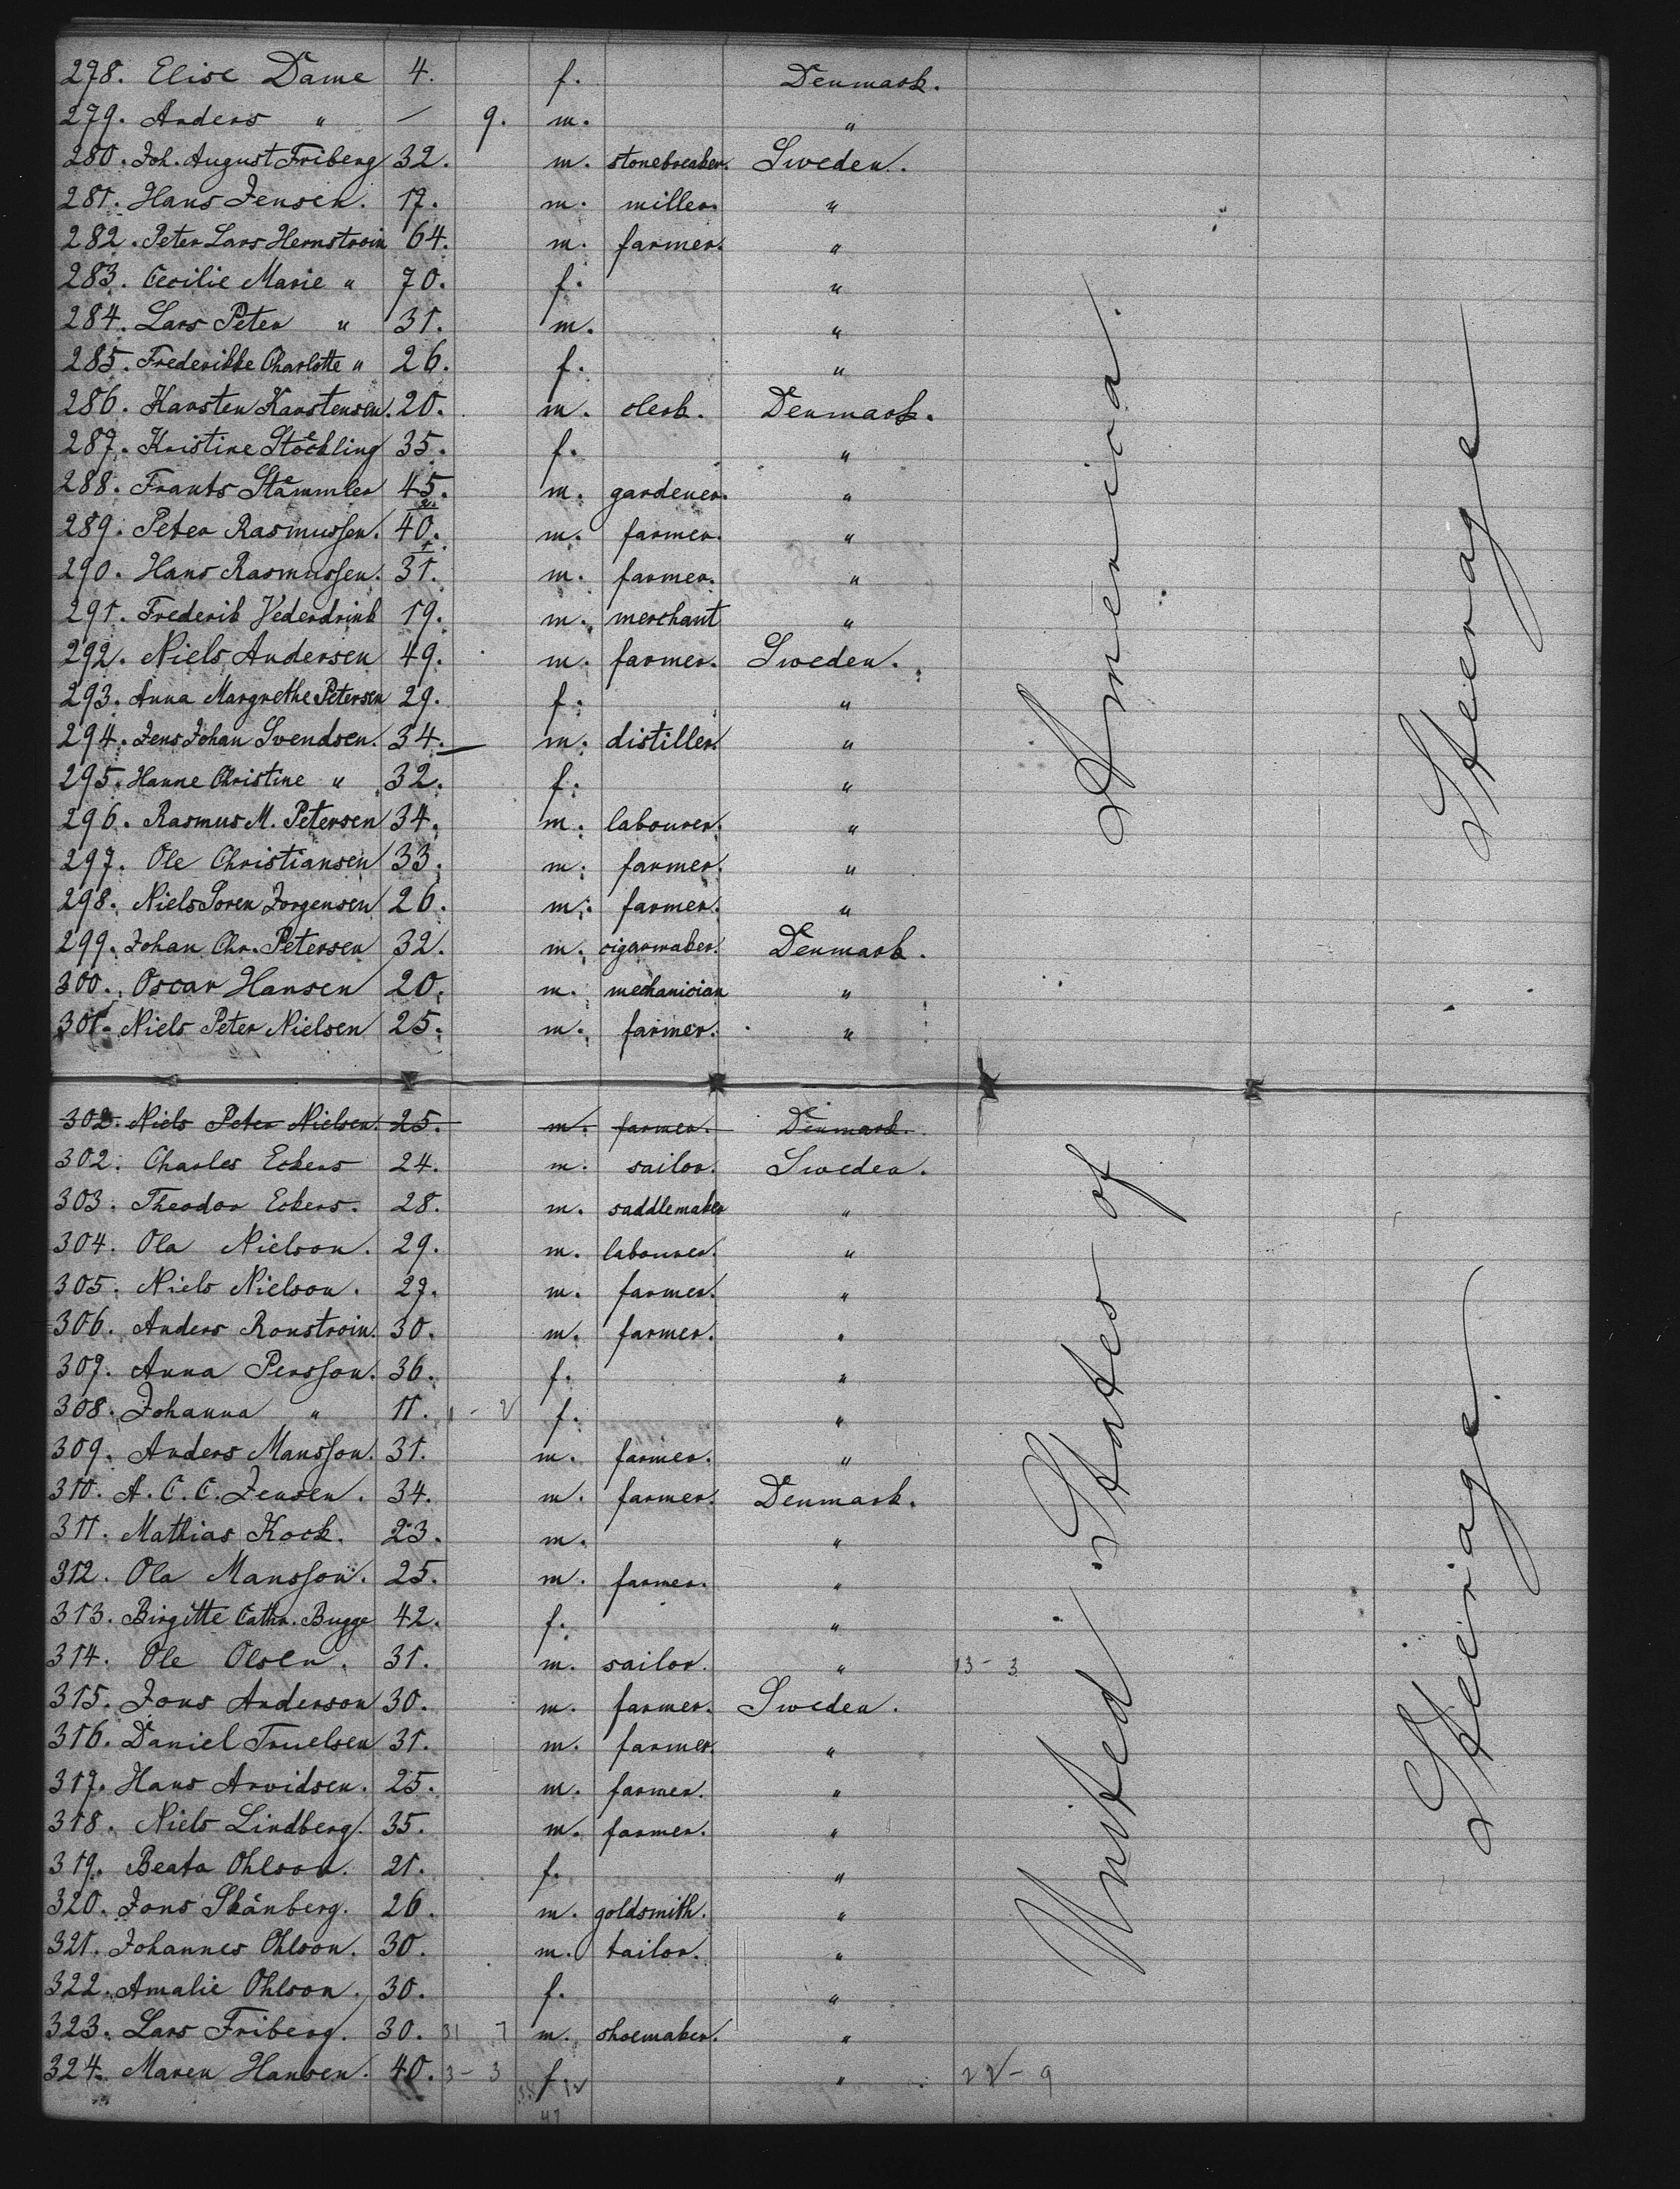 278. Elise Dame 4. f. Denmark.
279. Anders " – 9. m. "
280. Joh. August Friberg 32. m. stonebreaker. Sweden.
281. Hans Jensen. 17. m. miller. "
282. Peter Lars Hernstroin 64. m. farmer. "
283. Cecilie Marie " 70. f. "
284. Lars Peter " 31. m. "
285. Frederikke Charlotte " 26. f. "
286. Karsten Karstensen. 20. m. clerk. Denmark.
287. Kristine Stoeckling 35. f. "
288. Frants Staemmler 45. m. gardener. "
289. Peter Rasmussen. 40. m. farmer. "
290. Hans Rasmussen. 31. m. farmer. "
291. Frederik Vederdrink 19. m. merchant "
292. Niels Andersen 49. m. farmer. Sweden.
293. Anna Margrethe Petersen 29. f. "
294. Jens Johan Svendsen. 34. m. distiller. "
295. Hanne Christine " 32. f. "
296. Rasmus M. Petersen 34. m. labourer. "
297. Ole Christiansen 33. m. farmer. "
298. Niels Soren Jorgensen 26. m. farmer. "
299. Johan Chr. Petersen 32. m. cigarmaker. Denmark.
300. Oscar Hansen 20. m. mechanician "
301. Niels Peter Nielsen 25. m. farmer. "
302. Niels Peter Nielsen. 25. m. farmer. Denmark.
302. Charles Eckers 24. m. sailor. Sweden.
303. Theodor Eckers. 28. m. saddlemaker "
304. Ola Nielson. 29. m. labourer. "
305. Niels Nielson. 27. m. farmer. "
306. Anders Ronstroin. 30. m. farmer. "
307. Anna Persson. 36. f. "
308. Johanna " 11. f. "
309. Anders Mansson. 31. m. farmer. "
310. A. C. C. Jensen. 34. m. farmer. Denmark.
311. Mathias Kock. 23. m. "
312. Ola Mansson. 25. m. farmer. "
313. Birgitte Cathr. Bugge 42. f. "
314. Ole Olsen. 31. m. sailor. " 13 - 3
315. Jons Anderson 30. m. farmer. Sweden.
316. Daniel Truelsen 31. m. farmer. "
317. Hans Arvidsen. 25. m. farmer. "
318. Niels Lindberg. 35. m. farmer. "
319. Beata Ohlson. 21. f. "
320. Jons Skånberg. 26. m. goldsmith. "
321. Johannes Ohlson. 30. m. tailor. "
322. Amalie Ohlson. 30. f. "
323. Lars Friberg. 30. 31 7 m. shoemaker. "
324. Maren Hansen. 40. 3 - 3 f. " 22 - 9
47
United States of America.
Steerage.
Steerage